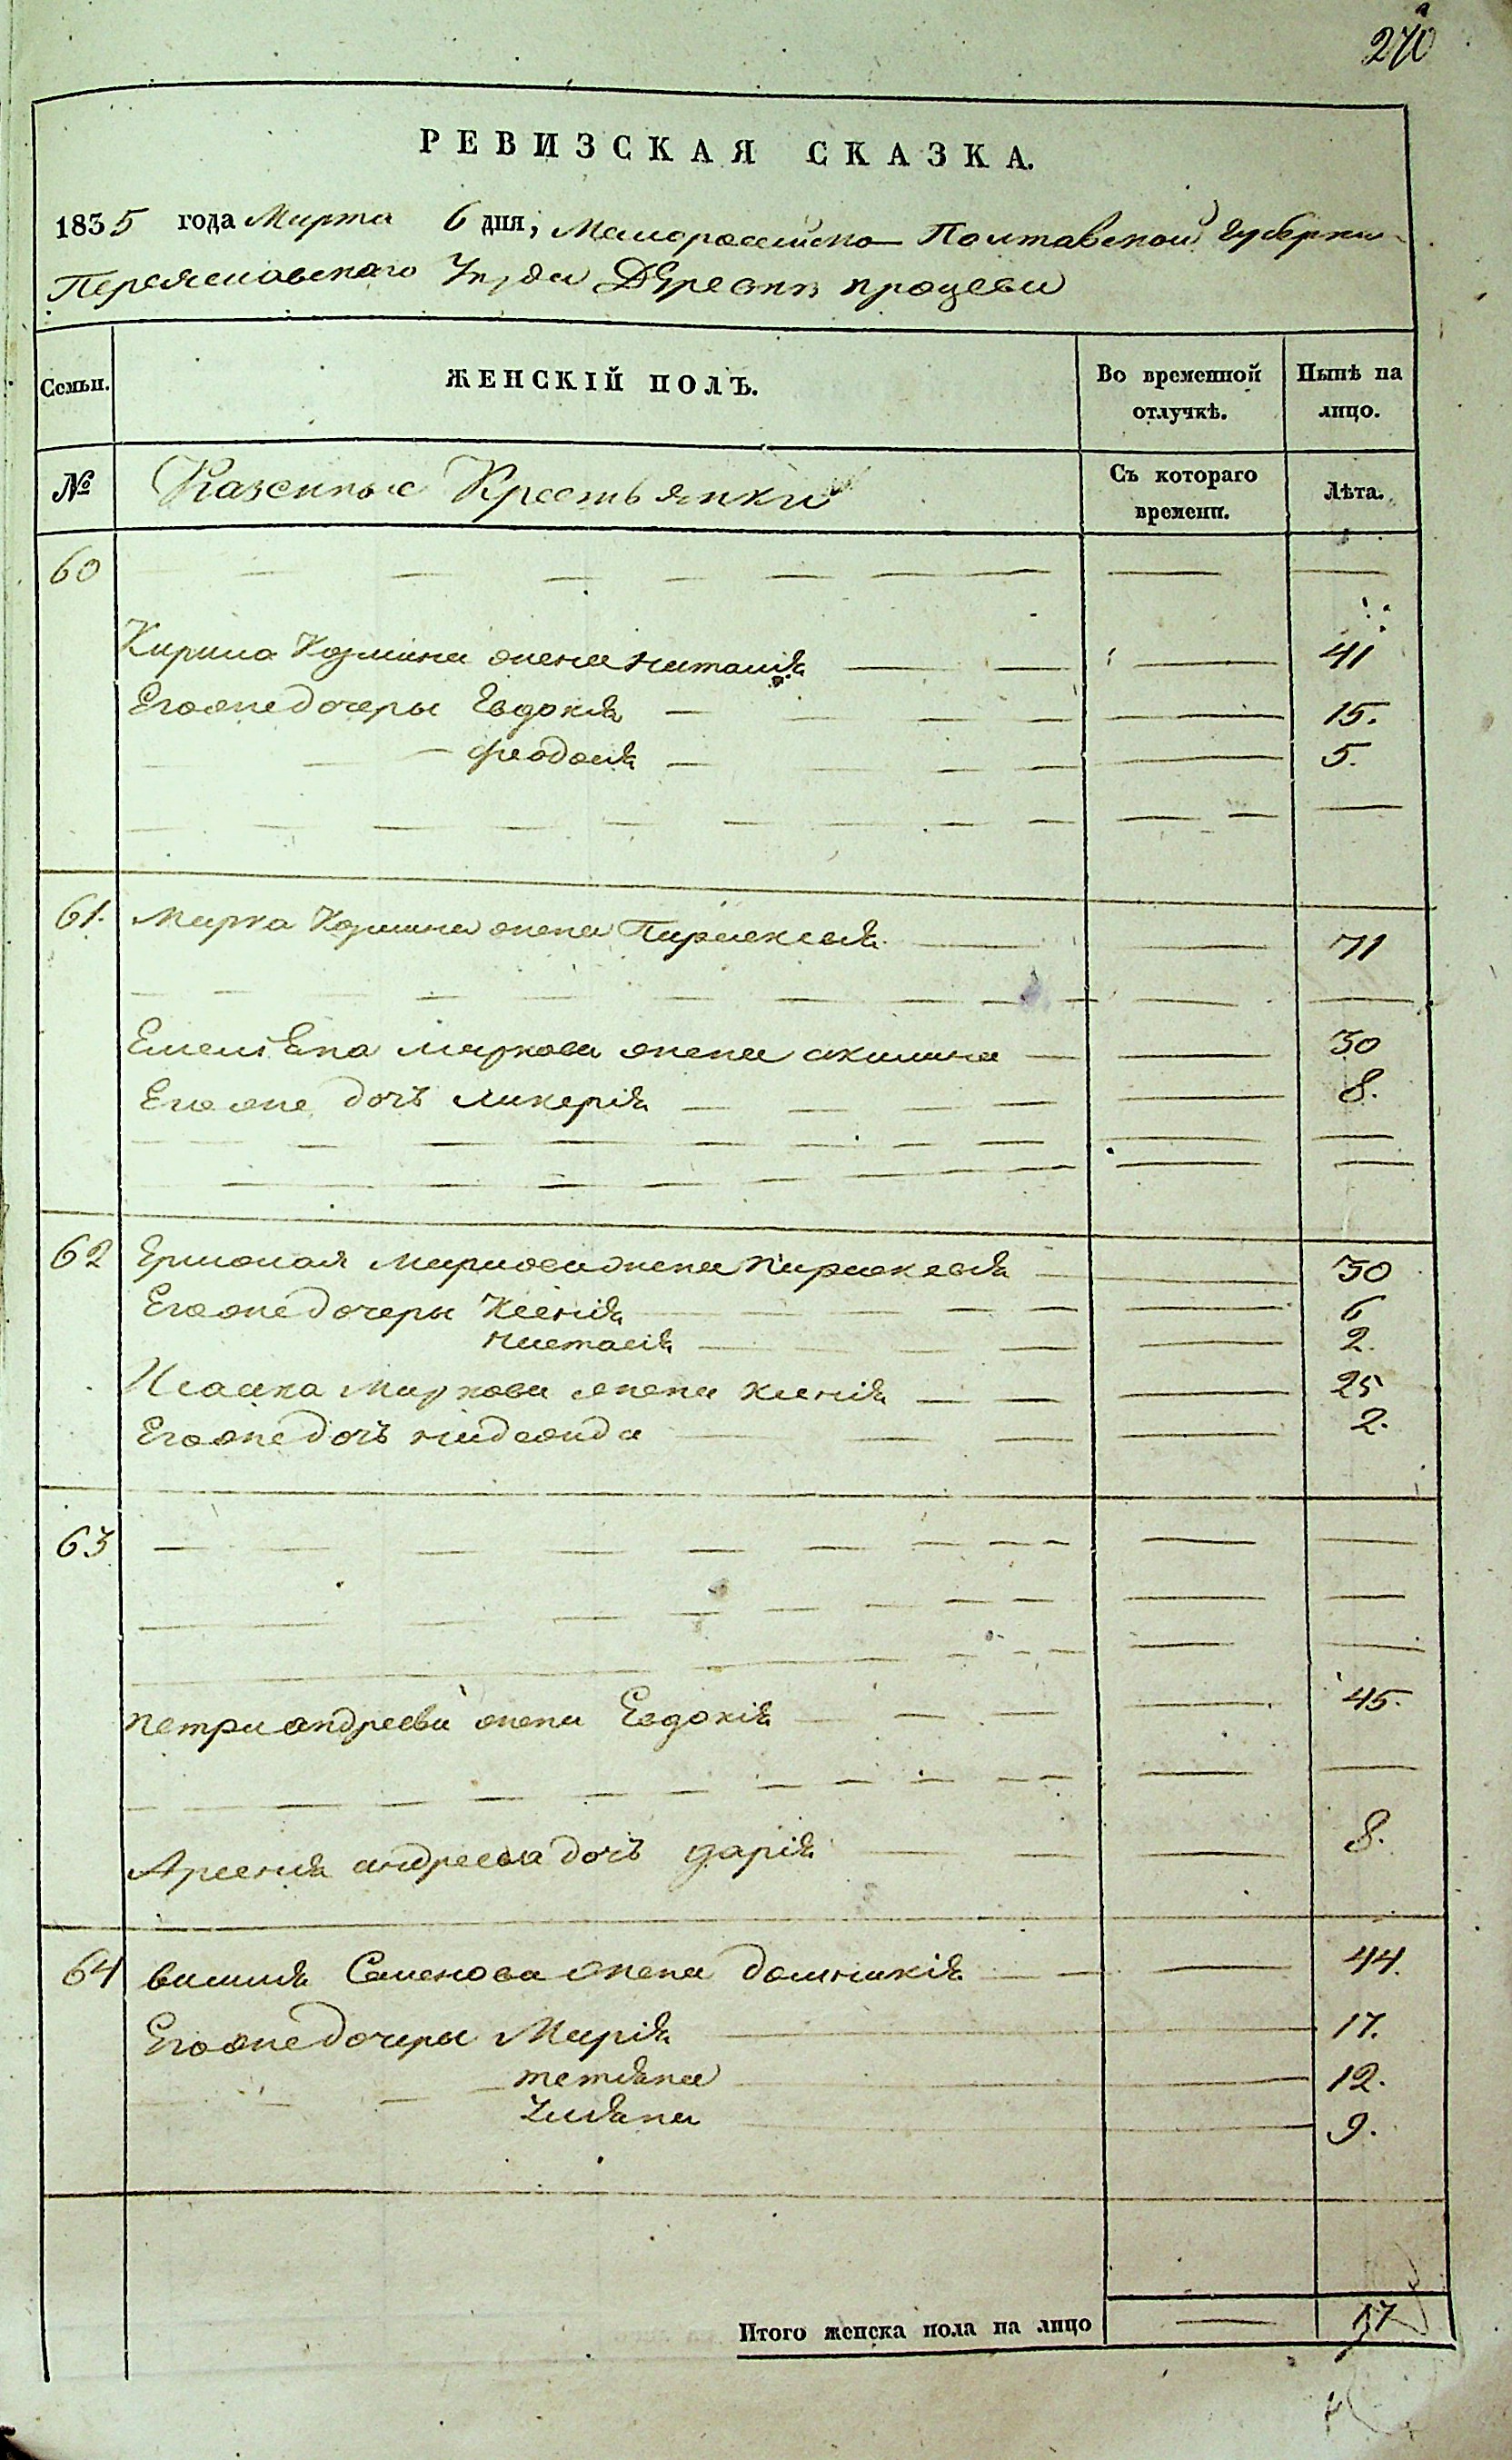 270
РЕВИЗСКАЯ СКАЗКА.
1835 года Марта 6 дня, Малоросийско Полтавской Губерни
Переяславского Уезда Деревни процеви
Семьи. ЖЕНСКІЙ ПОЛЪ. Во временной отлучкѣ. Нынѣ на лицо.
№ Казенные Крестьянки Съ котораго времени. Лѣта.
60
Кирила Козмина жена Наталия 41
Егоже дочеры Евдокия 15.
феодосия 5.
61. Марка Козмина жена Параскевия 71
Емелiяна Маркова жена акилина 30
Егоже дочъ Ликерiя 8.
62 Ермолая Маркова жена Параскевия 30
Егоже дочеры Ксенiя 6
Настасiя 2.
Исаака Маркова жена Ксенiя 25
Егоже дочъ 2.
63
петра андреева жена Евдокiя 45.
Арсения андреева дочъ дарiя 8.
64 василия Семенова жена домникiя 44.
Егоже дочеры Марiя 17.
тетiяна 12.
Улияна 9.
Итого женска пола на лицо 17